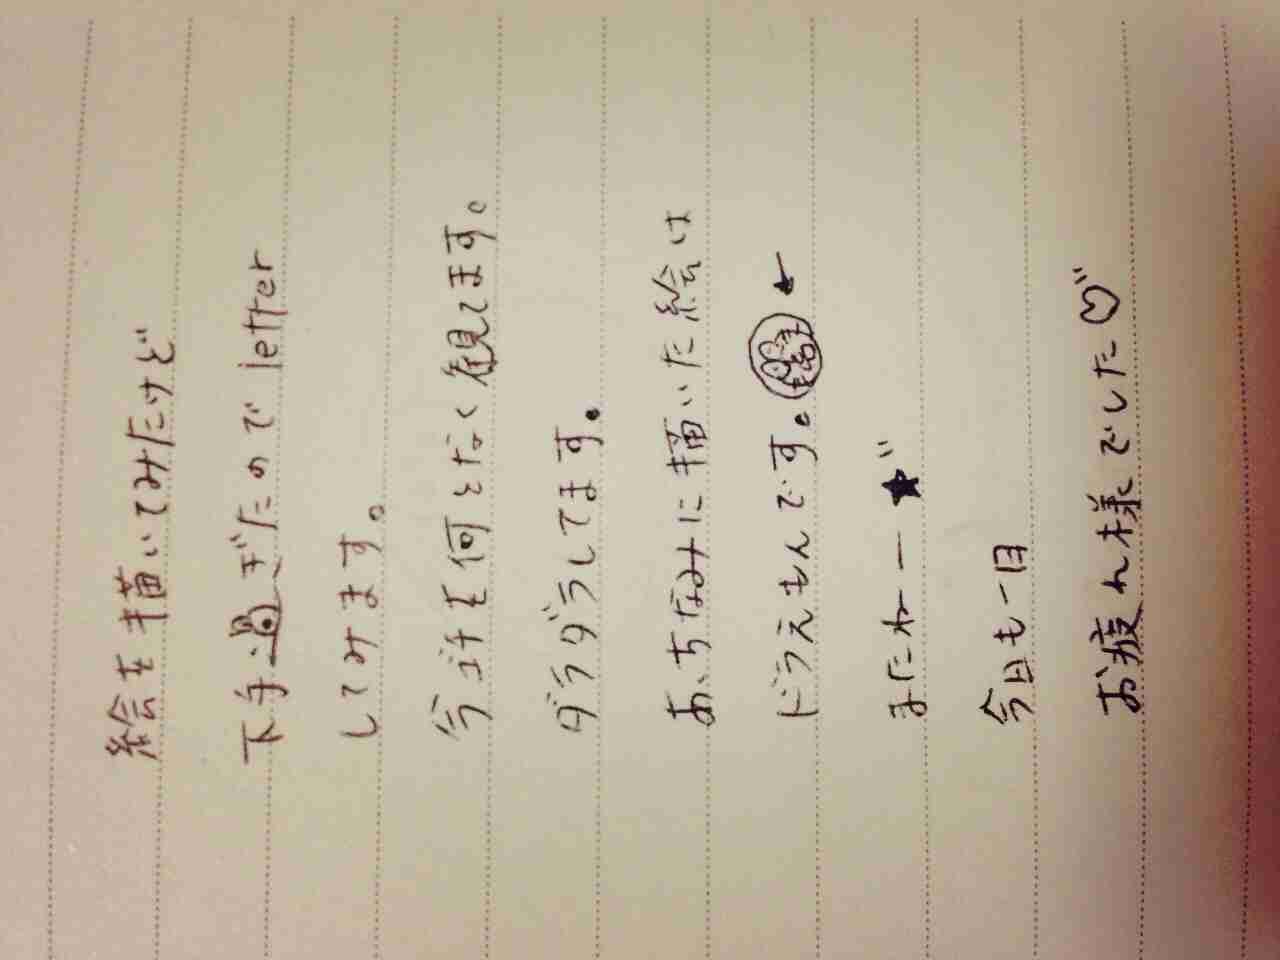 絵を描いてみたけど
下手過ぎたのでletter
してみます。
何となく観てます。
ダラダラしてます。
あ、ちなみに描いた絵は
ドラえもんです。←
またねー★゛
今日も一日
お疲れ様でした♡゛